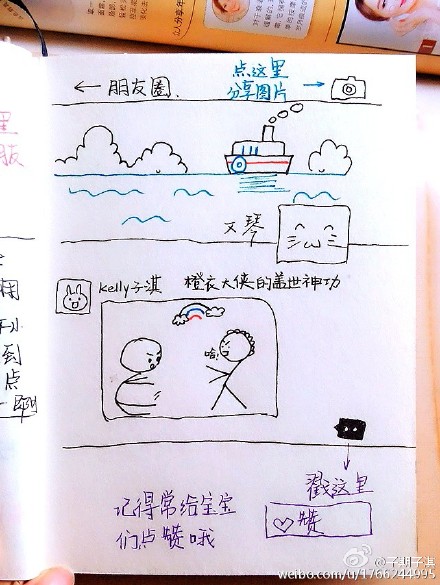 ← 朋友圈
点这里
分享图片 →
文琴
kelly子淇 橙衣大侠的盖世神功
哈!
戳这里
♡赞
记得常给宝宝
们点赞哦
到
点
@子期子淇
weibo.com/u/1766244995